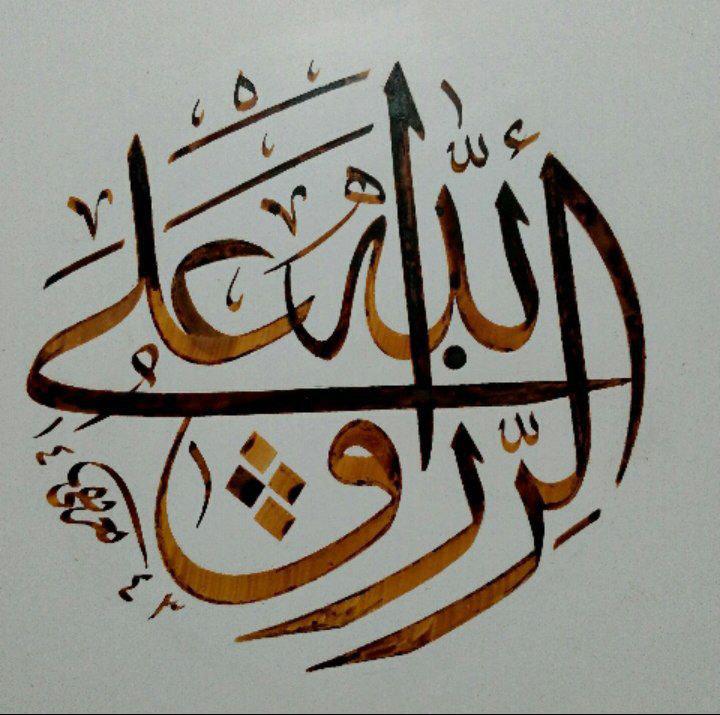 الرِّزق على الله